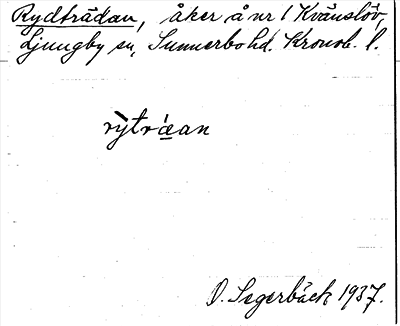 Rydträdan, åker å nr 1 Kvänslöv,
Ljungby sn, Sunnerbo hd. Kronob. l.
rỳtrǽan
D. Segerbäck 1937.